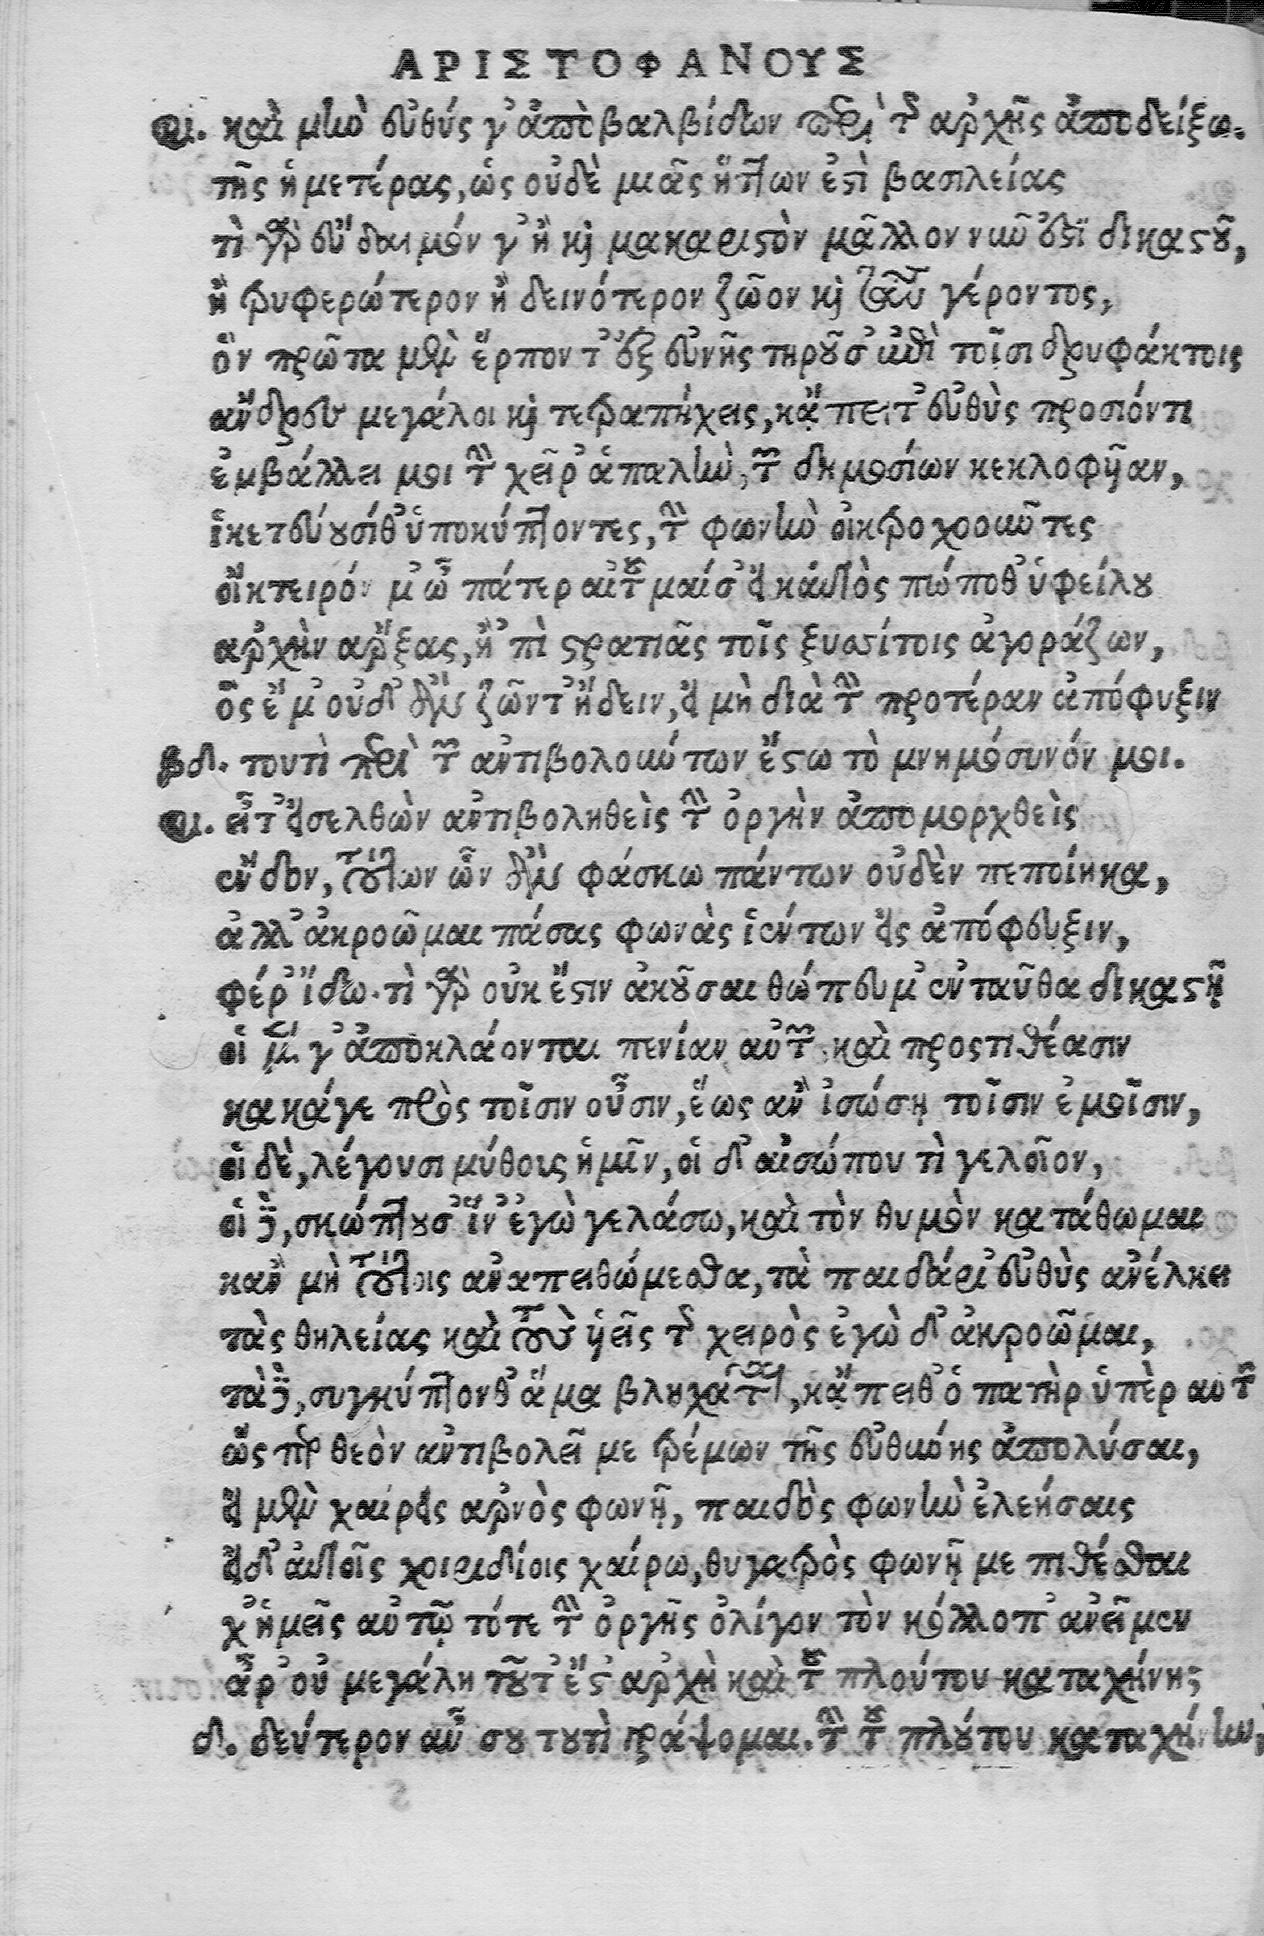 ΑΡΙΣΤΟΦΑΝΟΥΣ
φι. καὶ μὴν εὐθύς γ' ἀπὸ βαλβίδων περὶ τῆς ἀρχῆς ἀποδείξω.
τῆς ἡμετέρας, ὡς οὐδὲ μιᾶς ἥττων ἐστὶ βασιλείας
τὶ γὰρ εὔδαιμόν γ' ἢ καὶ μακαριστὸν μᾶλλον νῦν ἐστὶ δικαστοῦ,
ἢ τρυφερώτερον ἢ δεινότερον ζῶον καὶ ταῦτα γέροντος,
ὃν πρῶτα μὲν ἕρποντ' ἐξ εὐνῆς τηροῦσ' ἐπὶ τοῖσι δρυφάκτοις
ἄνδρες μεγάλοι καὶ τετραπήχεις, κᾄπειτ' εὐθὺς προσιόντι
ἐμβάλλει μοι τὴν χεῖρ' ἁπαλὴν, τῶν δημοσίων κεκλοφυῖαν,
ἱκετεύουσίθ' ὑποκύπτοντες, τὴν φωνὴν οἰκτροχοοῦντες
οἴκτειρόν μ' ὦ πάτερ αἰτοῦμαί σ' εἰ καὐτὸς πώποθ' ὑφείλου
ἀρχὴν ἄρξας, ἢ 'πὶ στρατιᾶς τοῖς ξυσσίτοις ἀγοράζων,
ὃς ἔμ' οὐδ' ἂν ζῶντ' ᾔδειν, εἰ μὴ διὰ τὴν προτέραν ἀπόφυξιν
βδ. τουτὶ περὶ τῶν ἀντιβολούντων ἔστω τὸ μνημόσυνόν μοι.
φι. εἶτ' εἰσελθὼν ἀντιβοληθεὶς τὴν ὀργὴν ἀπομορχθεὶς
ἔνδον, τούτων ὧν ἂν φάσκω πάντων οὐδὲν πεποίηκα,
ἀλλ' ἀκροῶμαι πάσας φωνὰς ἱέντων εἰς ἀπόφευξιν,
φέρ' ἴδω. τὶ γὰρ οὐκ ἔστιν ἀκοῦσαι θώπευμ' ἐνταῦθα δικαστῇ
οἱ μέν γ' ἀποκλάονται πενίαν αὐτῶν καὶ προςτιθέασιν
κακάγε πρὸς τοῖσιν οὖσιν, ἕως ἂν ἰσώσῃ τοῖσιν ἐμοῖσιν,
οἱ δὲ, λέγουσι μύθους ἡμῖν, οἱ δ' αἰσώπου τὶ γελοῖον,
οἱ δὲ, σκώπτουσ' ἵν' ἐγὼ γελάσω, καὶ τὸν θυμὸν κατάθωμαι
κἂν μὴ τούτοις ἀναπειθώμεσθα, τὰ παιδάρι' εὐθὺς ἀνέλκει
τὰς θηλείας καὶ τοὺς υἱεῖς τῆς χειρὸς ἐγὼ δ' ἀκροῶμαι,
τὰ δὲ, συγκύπτονθ' ἅμα βληχᾶται, κᾄπειθ' ὁ πατὴρ ὑπὲρ αὐτῶν
ὥς περ θεὸν ἀντιβολεῖ με τρέμων τῆς εὐθύνης ἀπολύσαι,
εἰ μὲν χαίρεις ἀρνὸς φωνῇ, παιδὸς φωνὴν ἐλεήσαις
εἰ δ' αὐτοῖς χοιριδίοις χαίρω, θυγατρὸς φωνῇ με πιθέσθαι
χἠμεῖς αὐτῷ τότε τῆς ὀργῆς ὀλίγον τὸν κόλλοπ' ἀνεῖμεν
ἆρ' οὐ μεγάλη τοῦτ' ἔστ' ἀρχὴ καὶ τοῦ πλούτου καταχήνη;
δ. δεύτερον αὖ σου τουτὶ γράψομαι. τὴν τοῦ πλούτου καταχήνην,